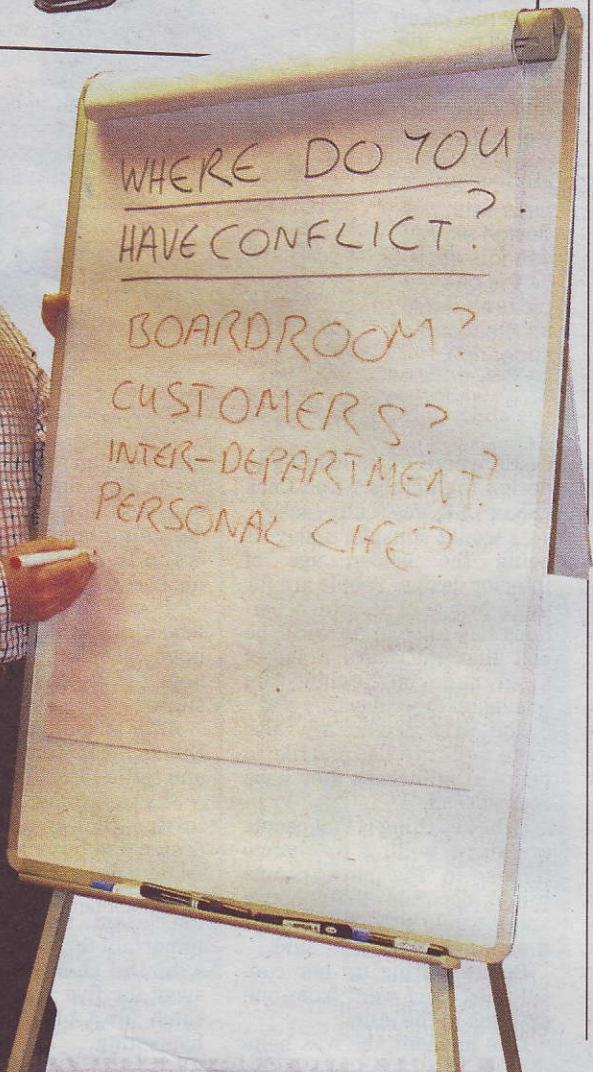 WHERE DO YOU
HAVE CONFLICT?
BOARDROOM?
CUSTOMERS?
INTER-DEPARTMENT?
PERSONAL LIFE?